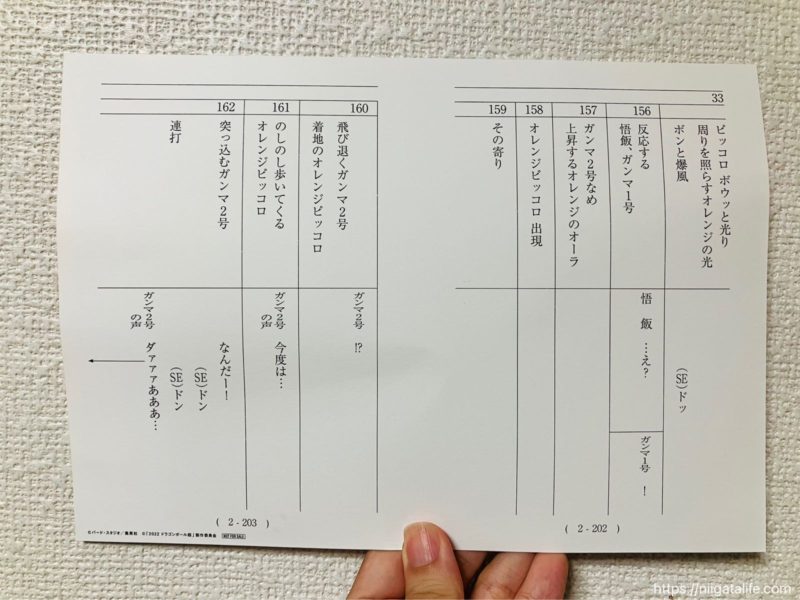 33
ピッコロ ボウッと光り
周りを照らすオレンジの光
ボンと爆風
(SE)ドッ
156
反応する
悟飯、ガンマ1号
悟 飯 …え?
ガンマ1号 !
157
ガンマ2号なめ
上昇するオレンジのオーラ
158
オレンジピッコロ 出現
159
その寄り
( 2 - 202 )
160
飛び退くガンマ2号
着地のオレンジピッコロ
ガンマ2号 !?
161
のしのし歩いてくる
オレンジピッコロ
ガンマ2号の声 今度は…
162
突っ込むガンマ2号
なんだー!
(SE)ドン
連打
(SE)ドン
ガンマ2号の声 ダァァァあああ…
( 2 - 203 )
©バード・スタジオ/集英社 ©「2022 ドラゴンボール超」製作委員会 NOT FOR SALE
https://niigatalife.com